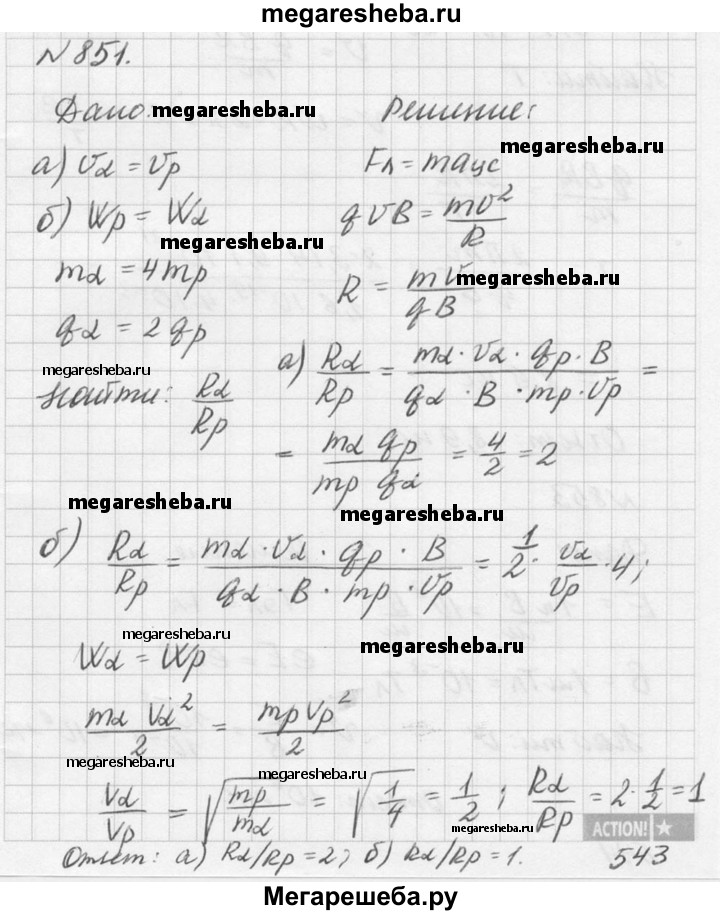 megaresheba.ru
№851.
Дано: megaresheba.ru Решение:
а) Vα = Vp
Fл = maцс megaresheba.ru
б) Wp = Wα
qVB = mv²/R
megaresheba.ru
mα = 4mp
R = mV/qB megaresheba.ru
qα = 2qp
megaresheba.ru
Найти: Rα/Rp
а) Rα/Rp = mα·Vα·qp·B/qα·B·mp·Vp =
= mα qp/mp qα = 4/2 = 2
megaresheba.ru megaresheba.ru
б) Rα/Rp = mα·Vα·qp·B/qα·B·mp·Vp = 1/2·Vα/Vp·4;
megaresheba.ru megaresheba.ru
Wα = Wp
mα Vα²/2 = mpVp²/2
megaresheba.ru megaresheba.ru
Vα/Vp = √mp/mα = √1/4 = 1/2; Rα/Rp = 2·1/2 = 1
megaresheba.ru ACTION!
Ответ: а) Rα/Rp = 2; б) Rα/Rp = 1. 543
Мегарешеба.ру